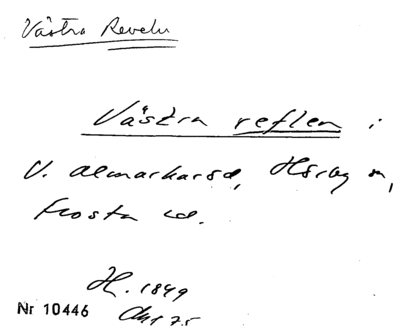 Västra Reveln
Västra reflen i
V. Almarkarsd, Hörby n,
Frosta hd.
H. 1849
Nr 10446